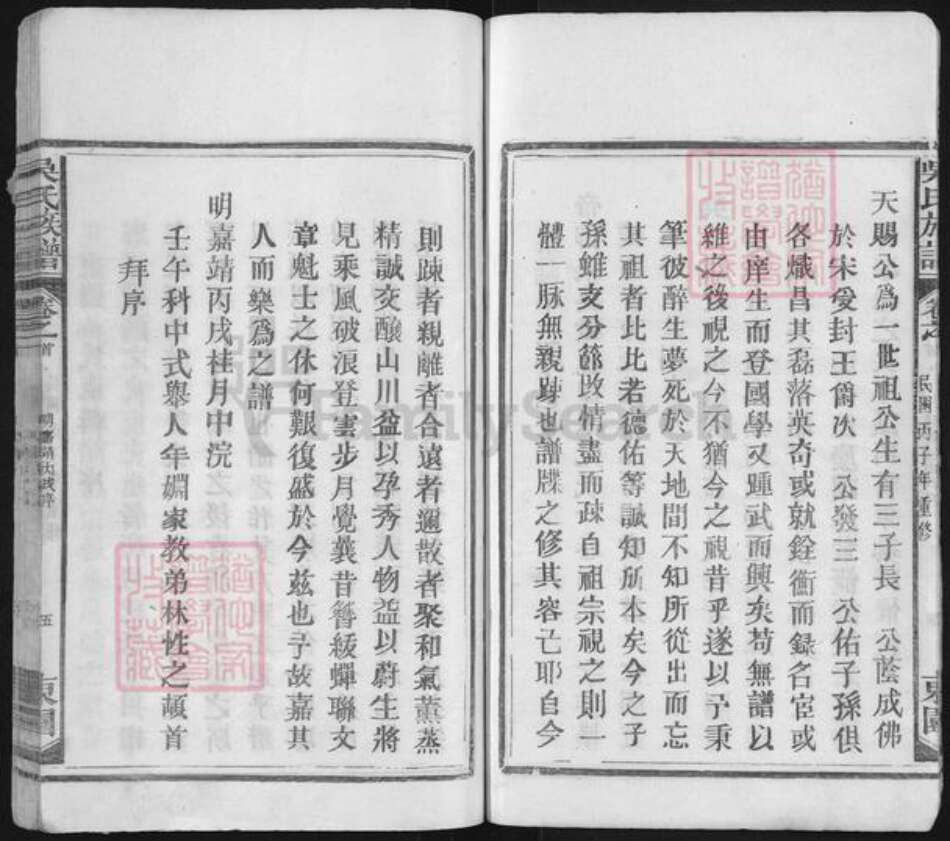 天賜公爲一世祖公生有三子長　公蔭成佛
於宋受封王爵次　公發三　公佑子孫俱
各熾昌其磊落英奇或就銓衡而録名宦或
由庠生而登國學又踵武而興矣苟無譜以
維之後視之今不猶今之視昔乎遂以予秉
筆彼醉生夢死於天地間不知所從出而忘
其祖者比比若德佑等諴知所本矣今之子
孫雖支分節改情盡而疎自祖宗視之則一
體一脉無親踈也譜牒之修其容已耶自今
吳氏族譜
卷之首
民國丙子年重修
東園
則踈者親離者合遠者邇散者聚和氣薰蒸
精誠交釀山川益以孕秀人物益以蔚生將
見乘風破浪登雲步月覺曩昔簪綬蟬聯文
章魁士之休何艱復盛於今茲也予故嘉其
人而樂爲之譜
明嘉靖丙戌桂月中浣
壬午科中式舉人年婣家教弟林性之頓首
拜序
吳氏族譜
卷之首
五
東園
FamilySearch